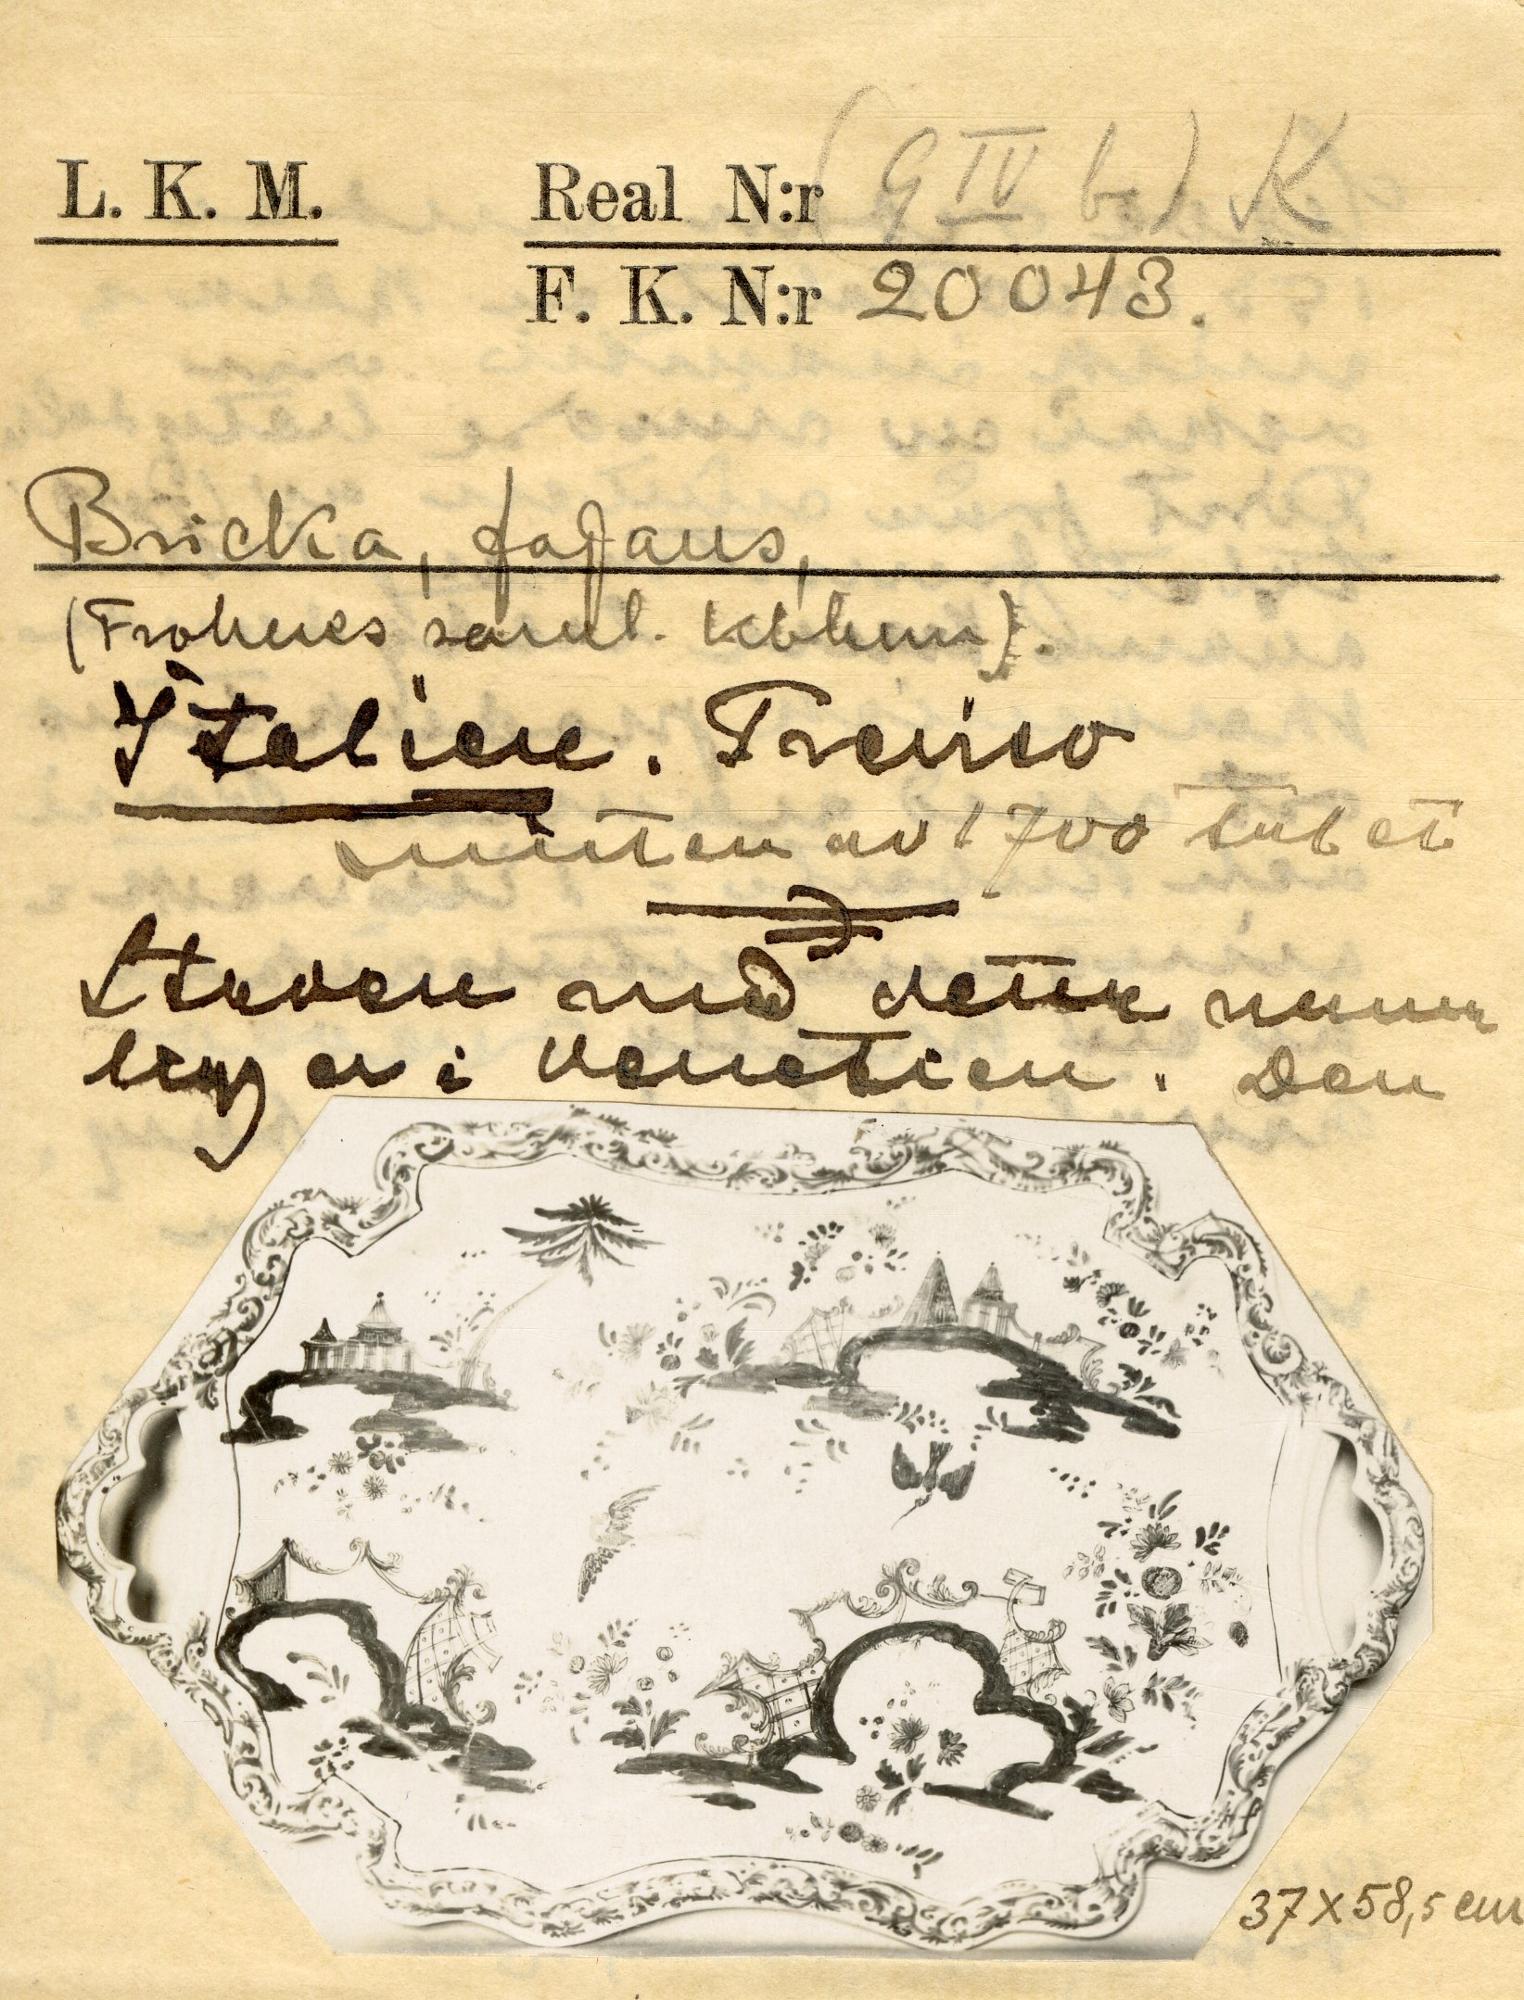 L. K. M.
Real N:r (G IV b.) K
F. K. N:r 20043.
Bricka, fajans,
(Frohnes saml. Kbhmn).
Italien. Treviso
slutten av 1700 talet
Staden med dette namn
ligger i Venetien. Den
37 X 58,5 cm